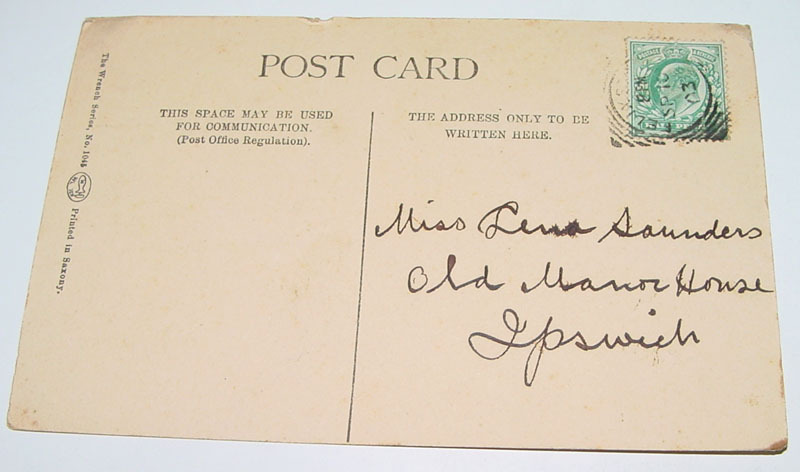 POST CARD
THIS SPACE MAY BE USED
FOR COMMUNICATION.
(Post Office Regulation).
THE ADDRESS ONLY TO BE
WRITTEN HERE.
Miss Lena Saunders
Old Manor House
Ipswich
The Wrench Series, No. 
Printed in Saxony.
POSTAGE
SP 10
03